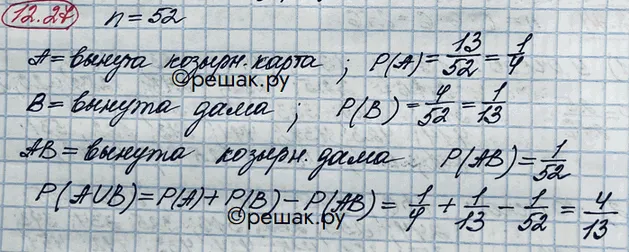 12.27 n = 52
A = вынута козырн. карта ; P(A) = 13/52 = 1/4
©решак.ру
B = вынута дама ; P(B) = 4/52 = 1/13
AB = вынута козырн. дама P(AB) = 1/52
P(AUB) = P(A) + P(B) - P(AB) = 1/4 + 1/13 - 1/52 = 4/13
©решак.ру